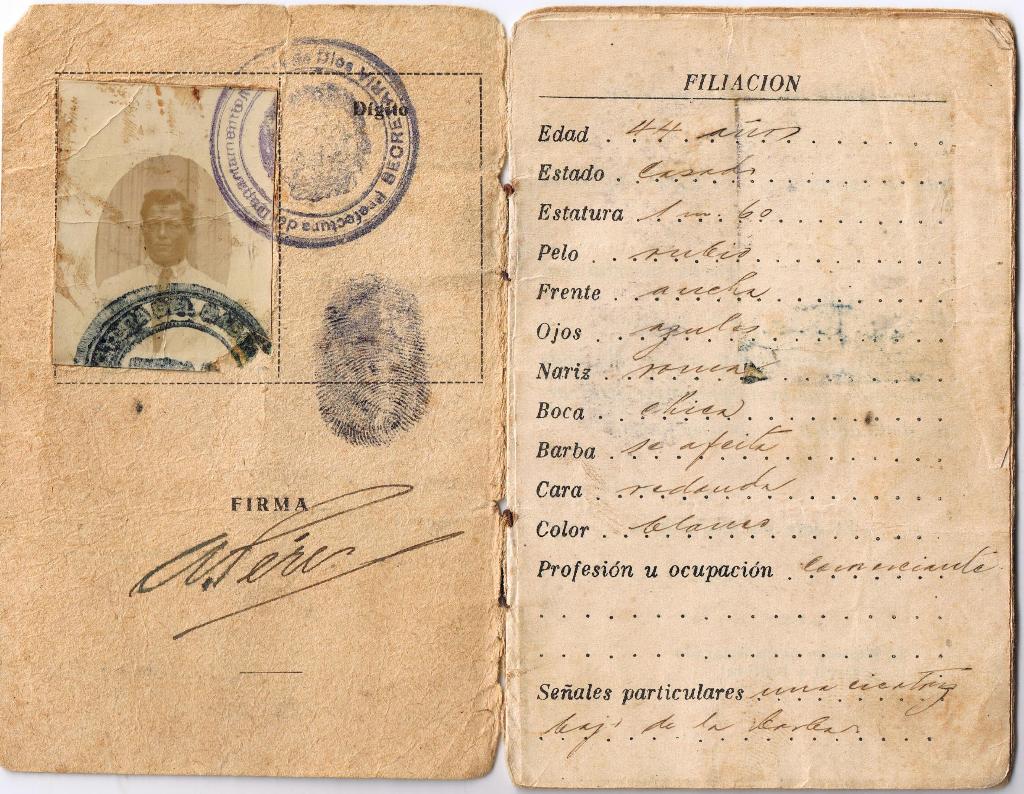 Dígito
Prefectura del Departamento
SECRETARIA
FIRMA
FILIACION
Edad 44 años
Estado casado
Estatura 1 m. 60
Pelo rubio
Frente ancha
Ojos azules
Nariz roma
Boca chica
Barba se afeita
Cara redonda
Color blanco
Profesión u ocupación comerciante
Señales particulares una cicatriz
bajo de la barba